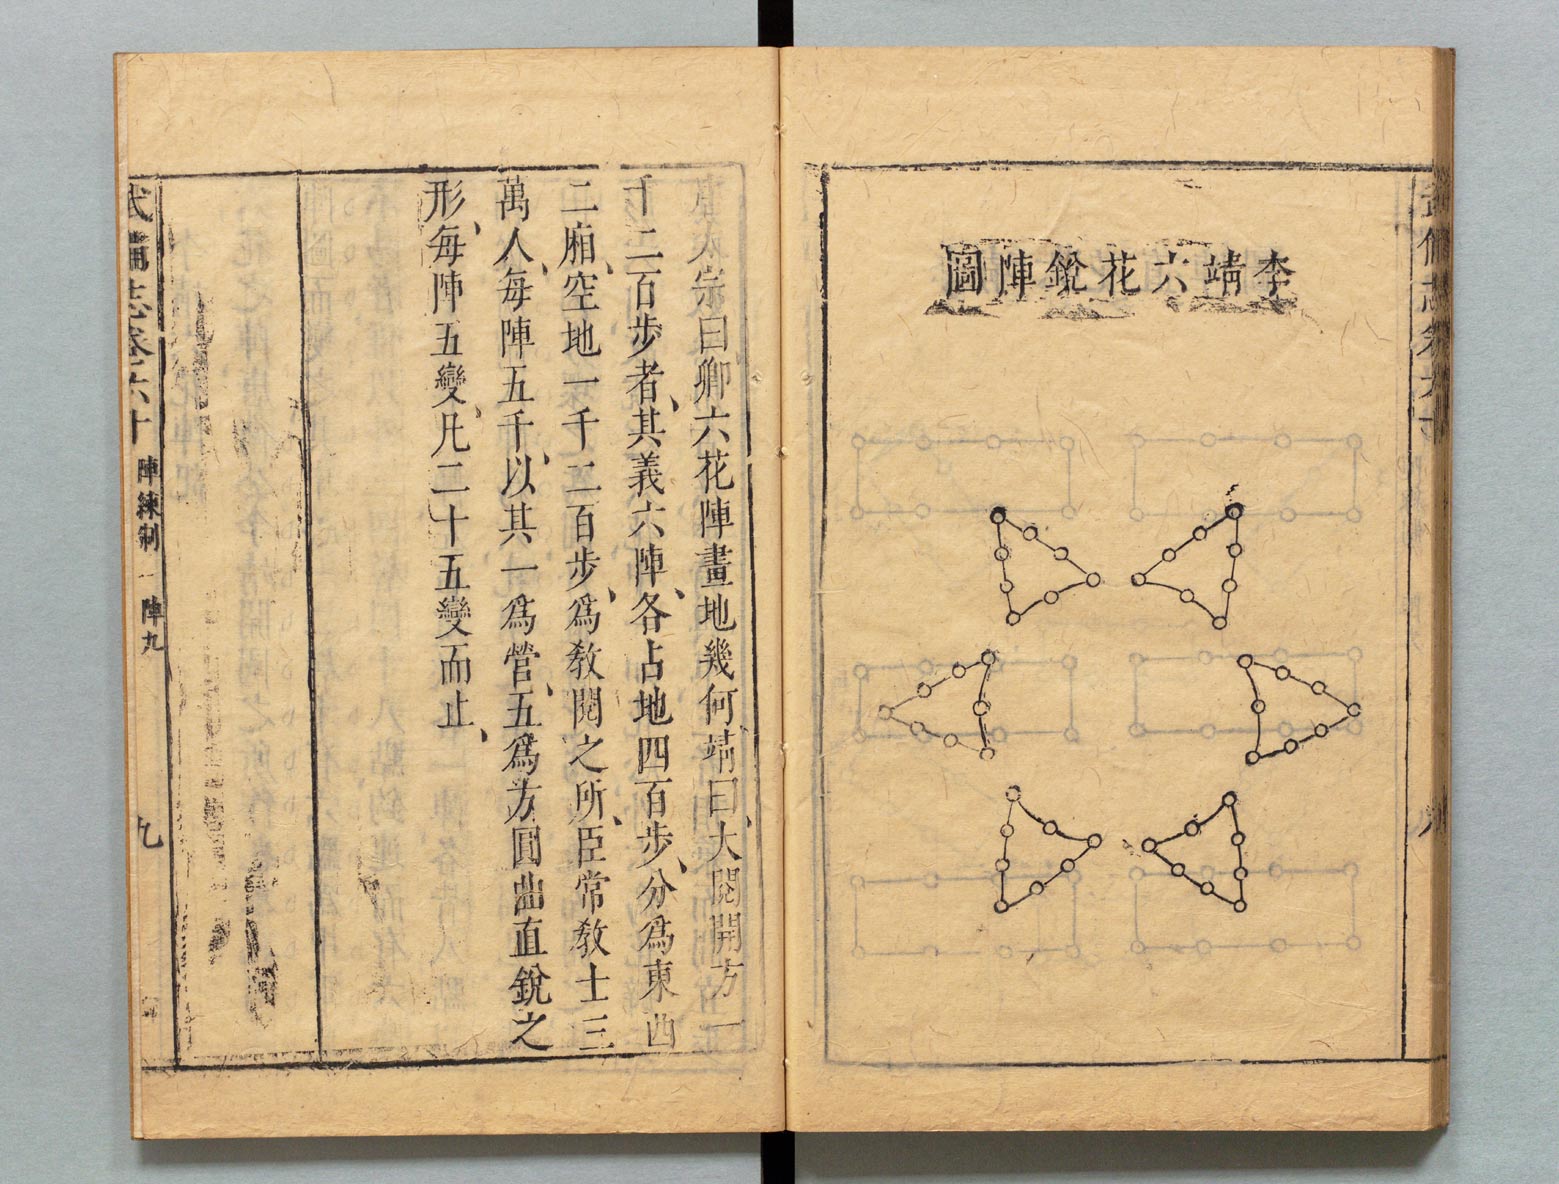 李靖六花銳陣圖
太宗曰卿六花陣畫地幾何、靖曰、大閱開方一
千二百步者、其義六陣、各占地四百步、分爲東西
二廂、空地一千二百步、爲敎閱之所、臣常敎士三
萬人、每陣五千、以其一爲營、五爲方圓曲直銳之
形、每陣五變、凡二十五變而止、
武備志卷六十 陣練制 一陣九 九